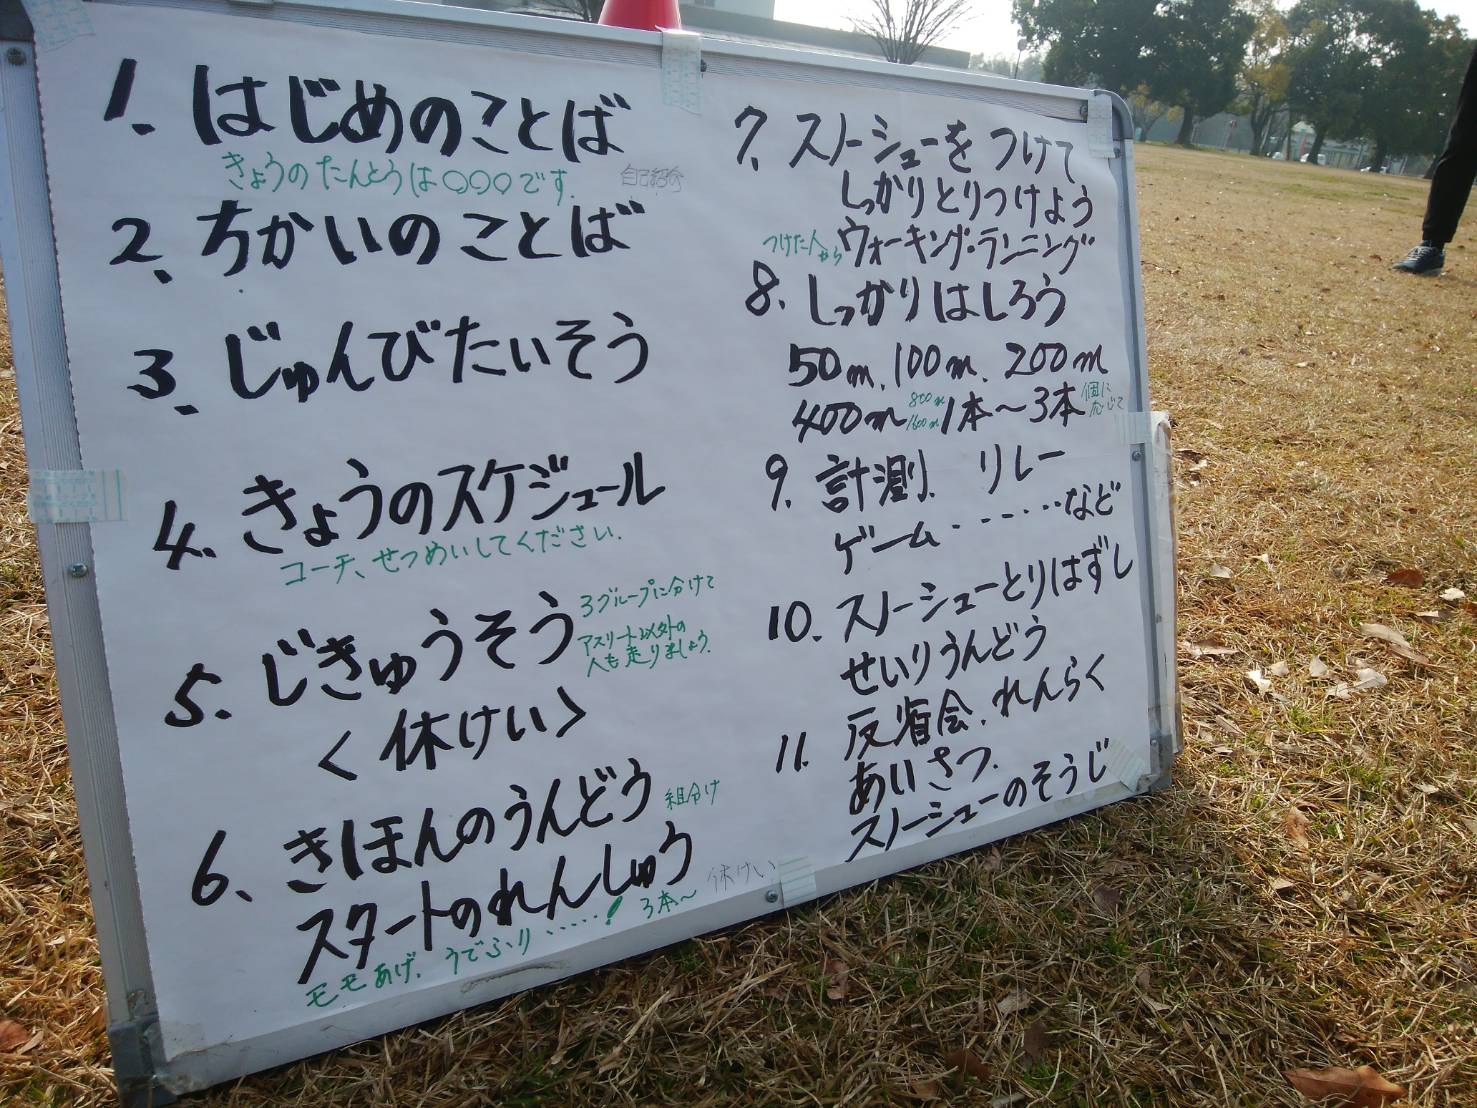 1. はじめのことば
きょうのたんとうは○○○です. 自己紹介
2. ちかいのことば
3. じゅんびたいそう
4. きょうのスケジュール
コーチ、せつめいしてください.
5. じきゅうそう
3グループに分けて
アスリート以外の
人も走りましょう.
<休けい>
6. きほんのうんどう 組分け
スタートのれんしゅう 休けい
モモあげ. うでふり ‥‥‥! 3本〜
7. スノーシューをつけて
しっかりとりつけよう
つけた人から ウォーキング・ランニング
8. しっかりはしろう
50m. 100m. 200m
400m 800m 1600m 1本〜3本 個に応じて
9. 計測. リレー
ゲーム‥‥‥など
10. スノーシューとりはずし
せいりうんどう
11. 反省会. れんらく
あいさつ.
スノーシューのそうじ